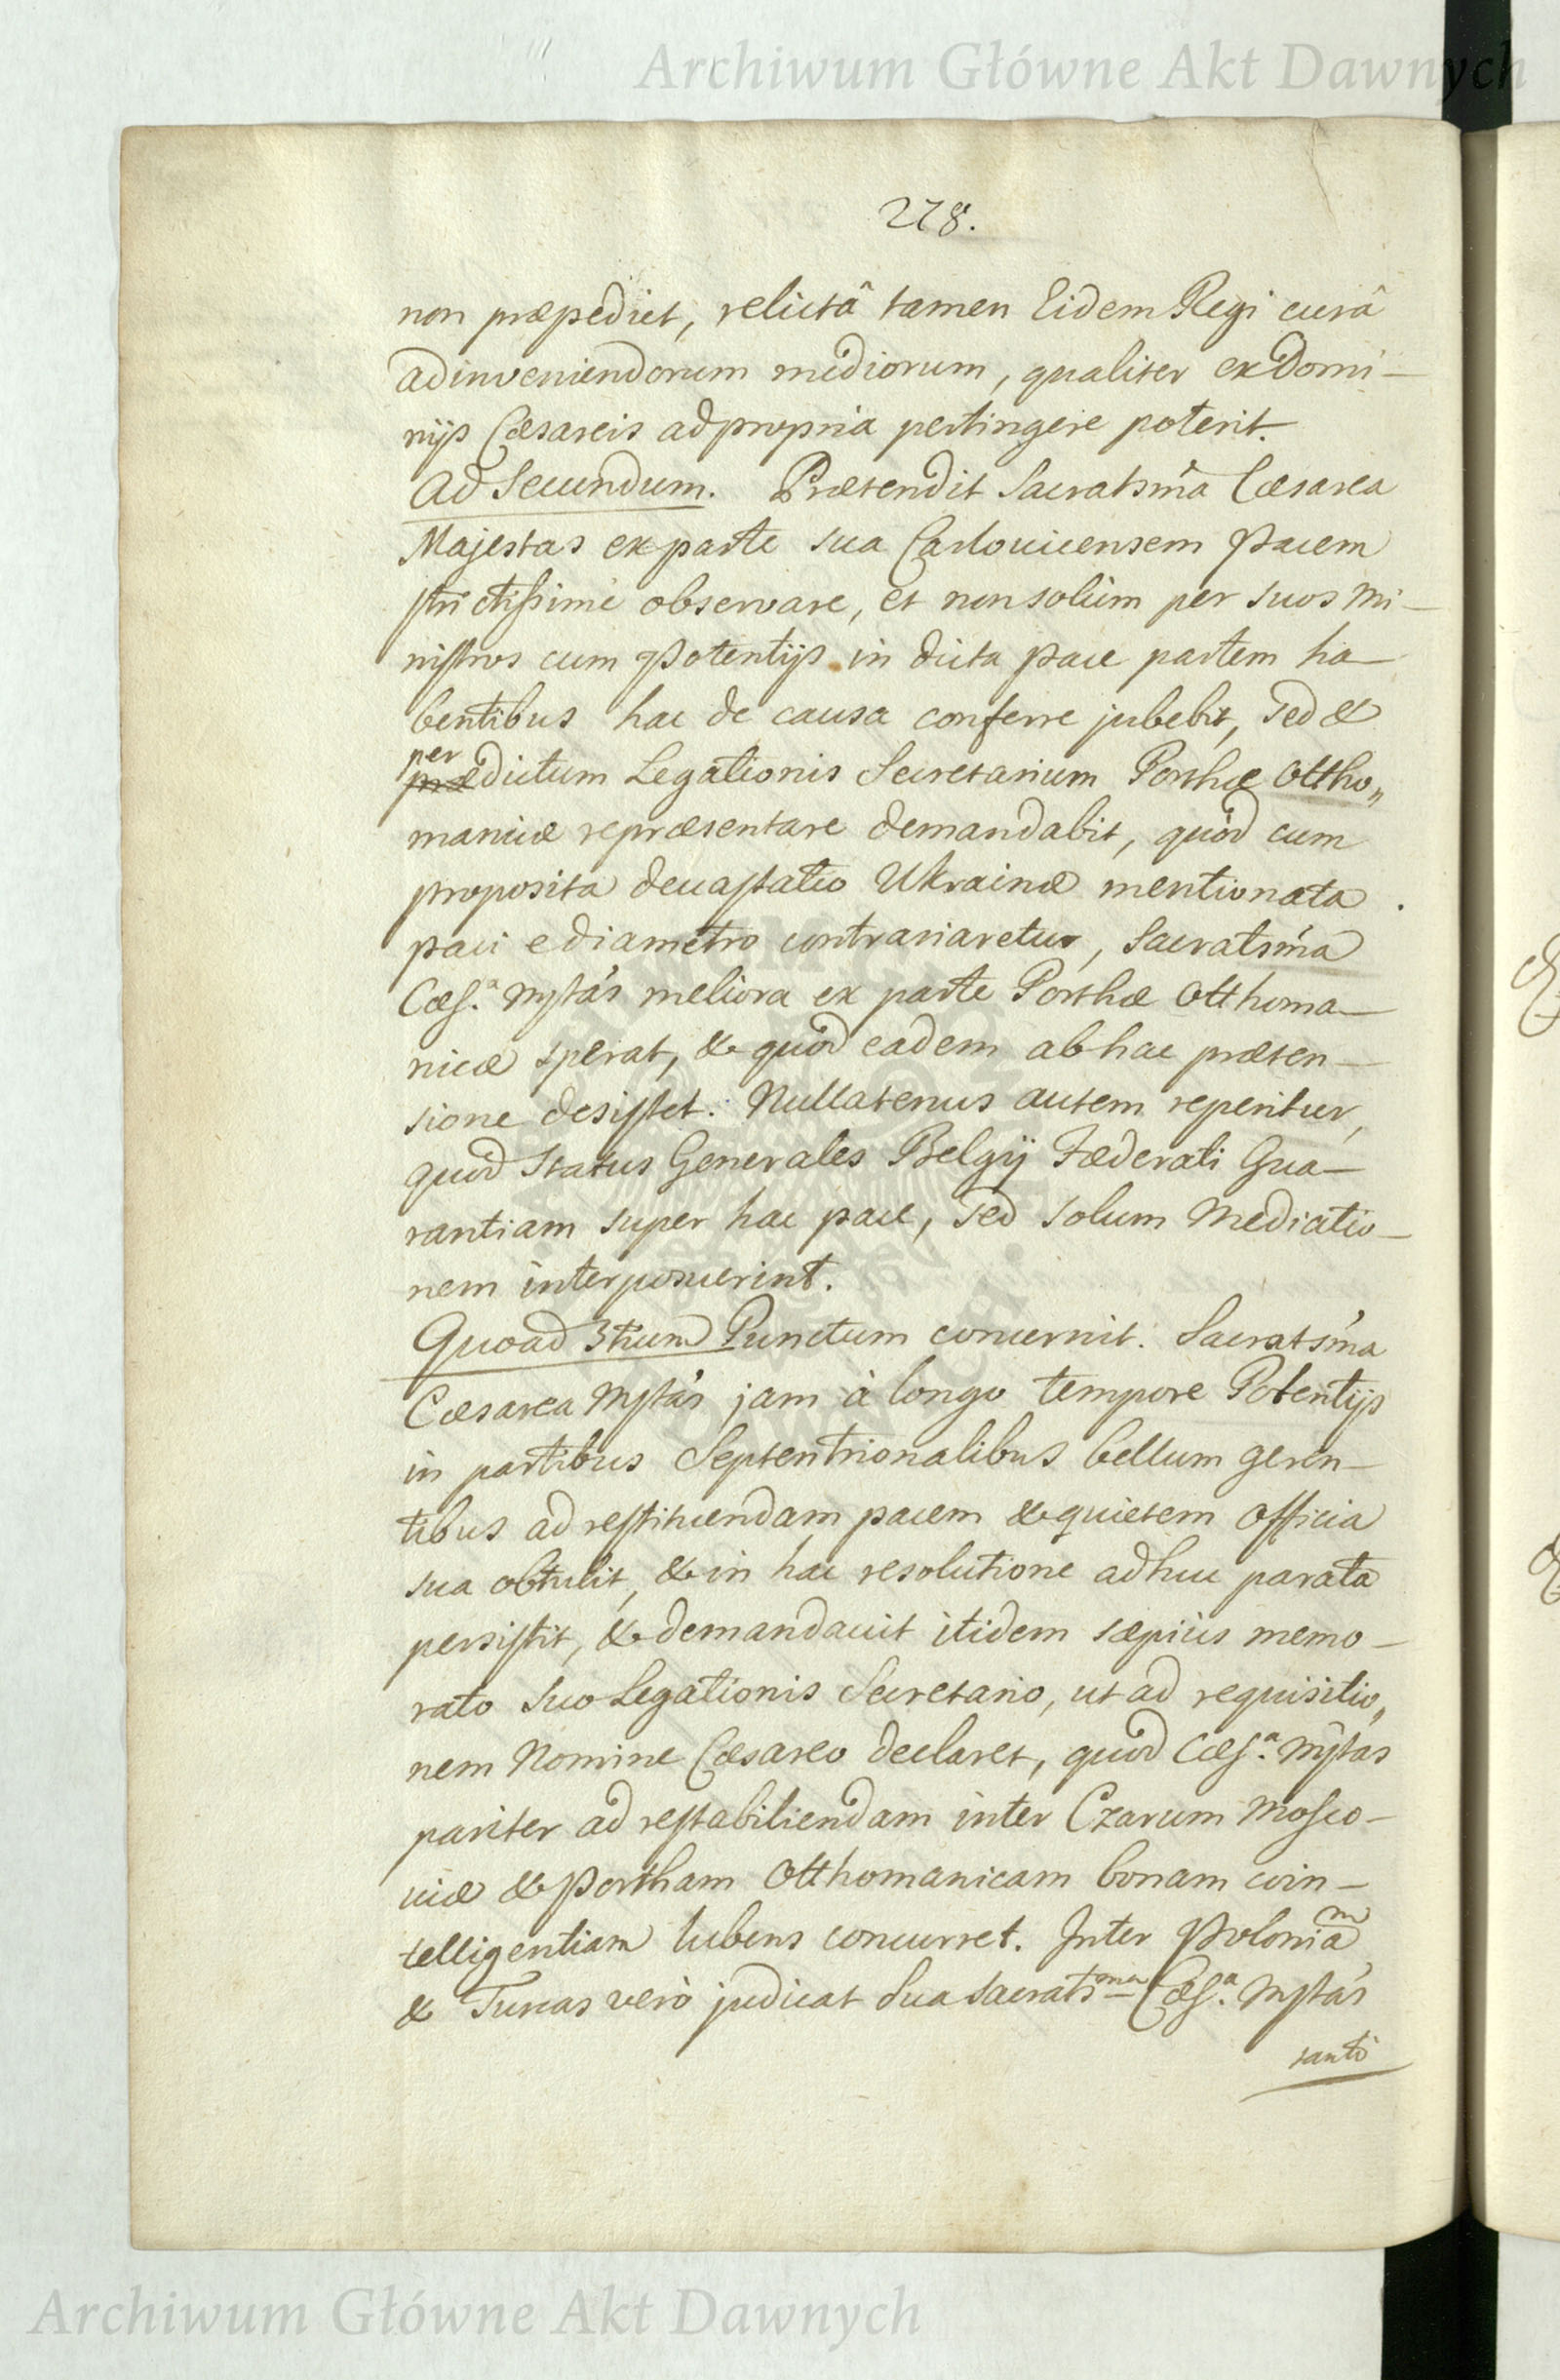 Archiwum Główne Akt Dawnych
278.
non præpediet, relictâ tamen Eidem Regi curâ
adinveniendorum mediorum, qualiter ex Domi-
nijs Cæsareis ad propria pertingere poterit.
Ad Secundum. Prætendit Sacratsm̃a Cæsarea
Majestas ex parte sua Carlovicensem Pacem
strictissimè observare, et non solùm per suos Mi-
nistros cum Potentijs in dicta pace partem ha-
bentibus hac de causa conferre jubebit, sed &
per
prædictum Legationis Secretarium Porthæ Ottho„
manicæ repræsentare demandabit, quòd cum
proposita devastatio Ukrainæ mentionata
paci e diametro contrariaretur, Sacratsm̃a
Cæs.ª Mstás meliora ex parte Porthæ Otthoma-
nicæ sperat, & quòd eadem ab hac præten-
sione desistet. Nullatenus autem reperitur,
quòd Status Generales Belgij Fæderati Gua-
rantiam super hac pace, sed solum Mediatio-
nem interposuerint.
Quoad 3tium Punctum concernit. Sacratsm̃a
Cæsarea Mstás jam à longo tempore Potentijs
in partibus Septentrionalibus bellum geren-
tibus ad restituendam pacem & quietem officia
sua obtulit, & in hac resolutione adhuc parata
persistit, & demandavit itidem sæpiùs memo-
rato suo Legationis Secretario, ut ad requisitio„
nem Nomine Cæsareo declaret, quòd Cæs.ª Mstás
pariter ad restabiliendam inter Czarum Mosco-
viæ & Portham Otthomanicam bonam coin-
telligentiam lubens concurret. Inter Poloniam
& Turcas verò judicat Sua Sacratsma Cæs.ª Mstás
tantò
Archiwum Główne Akt Dawnych